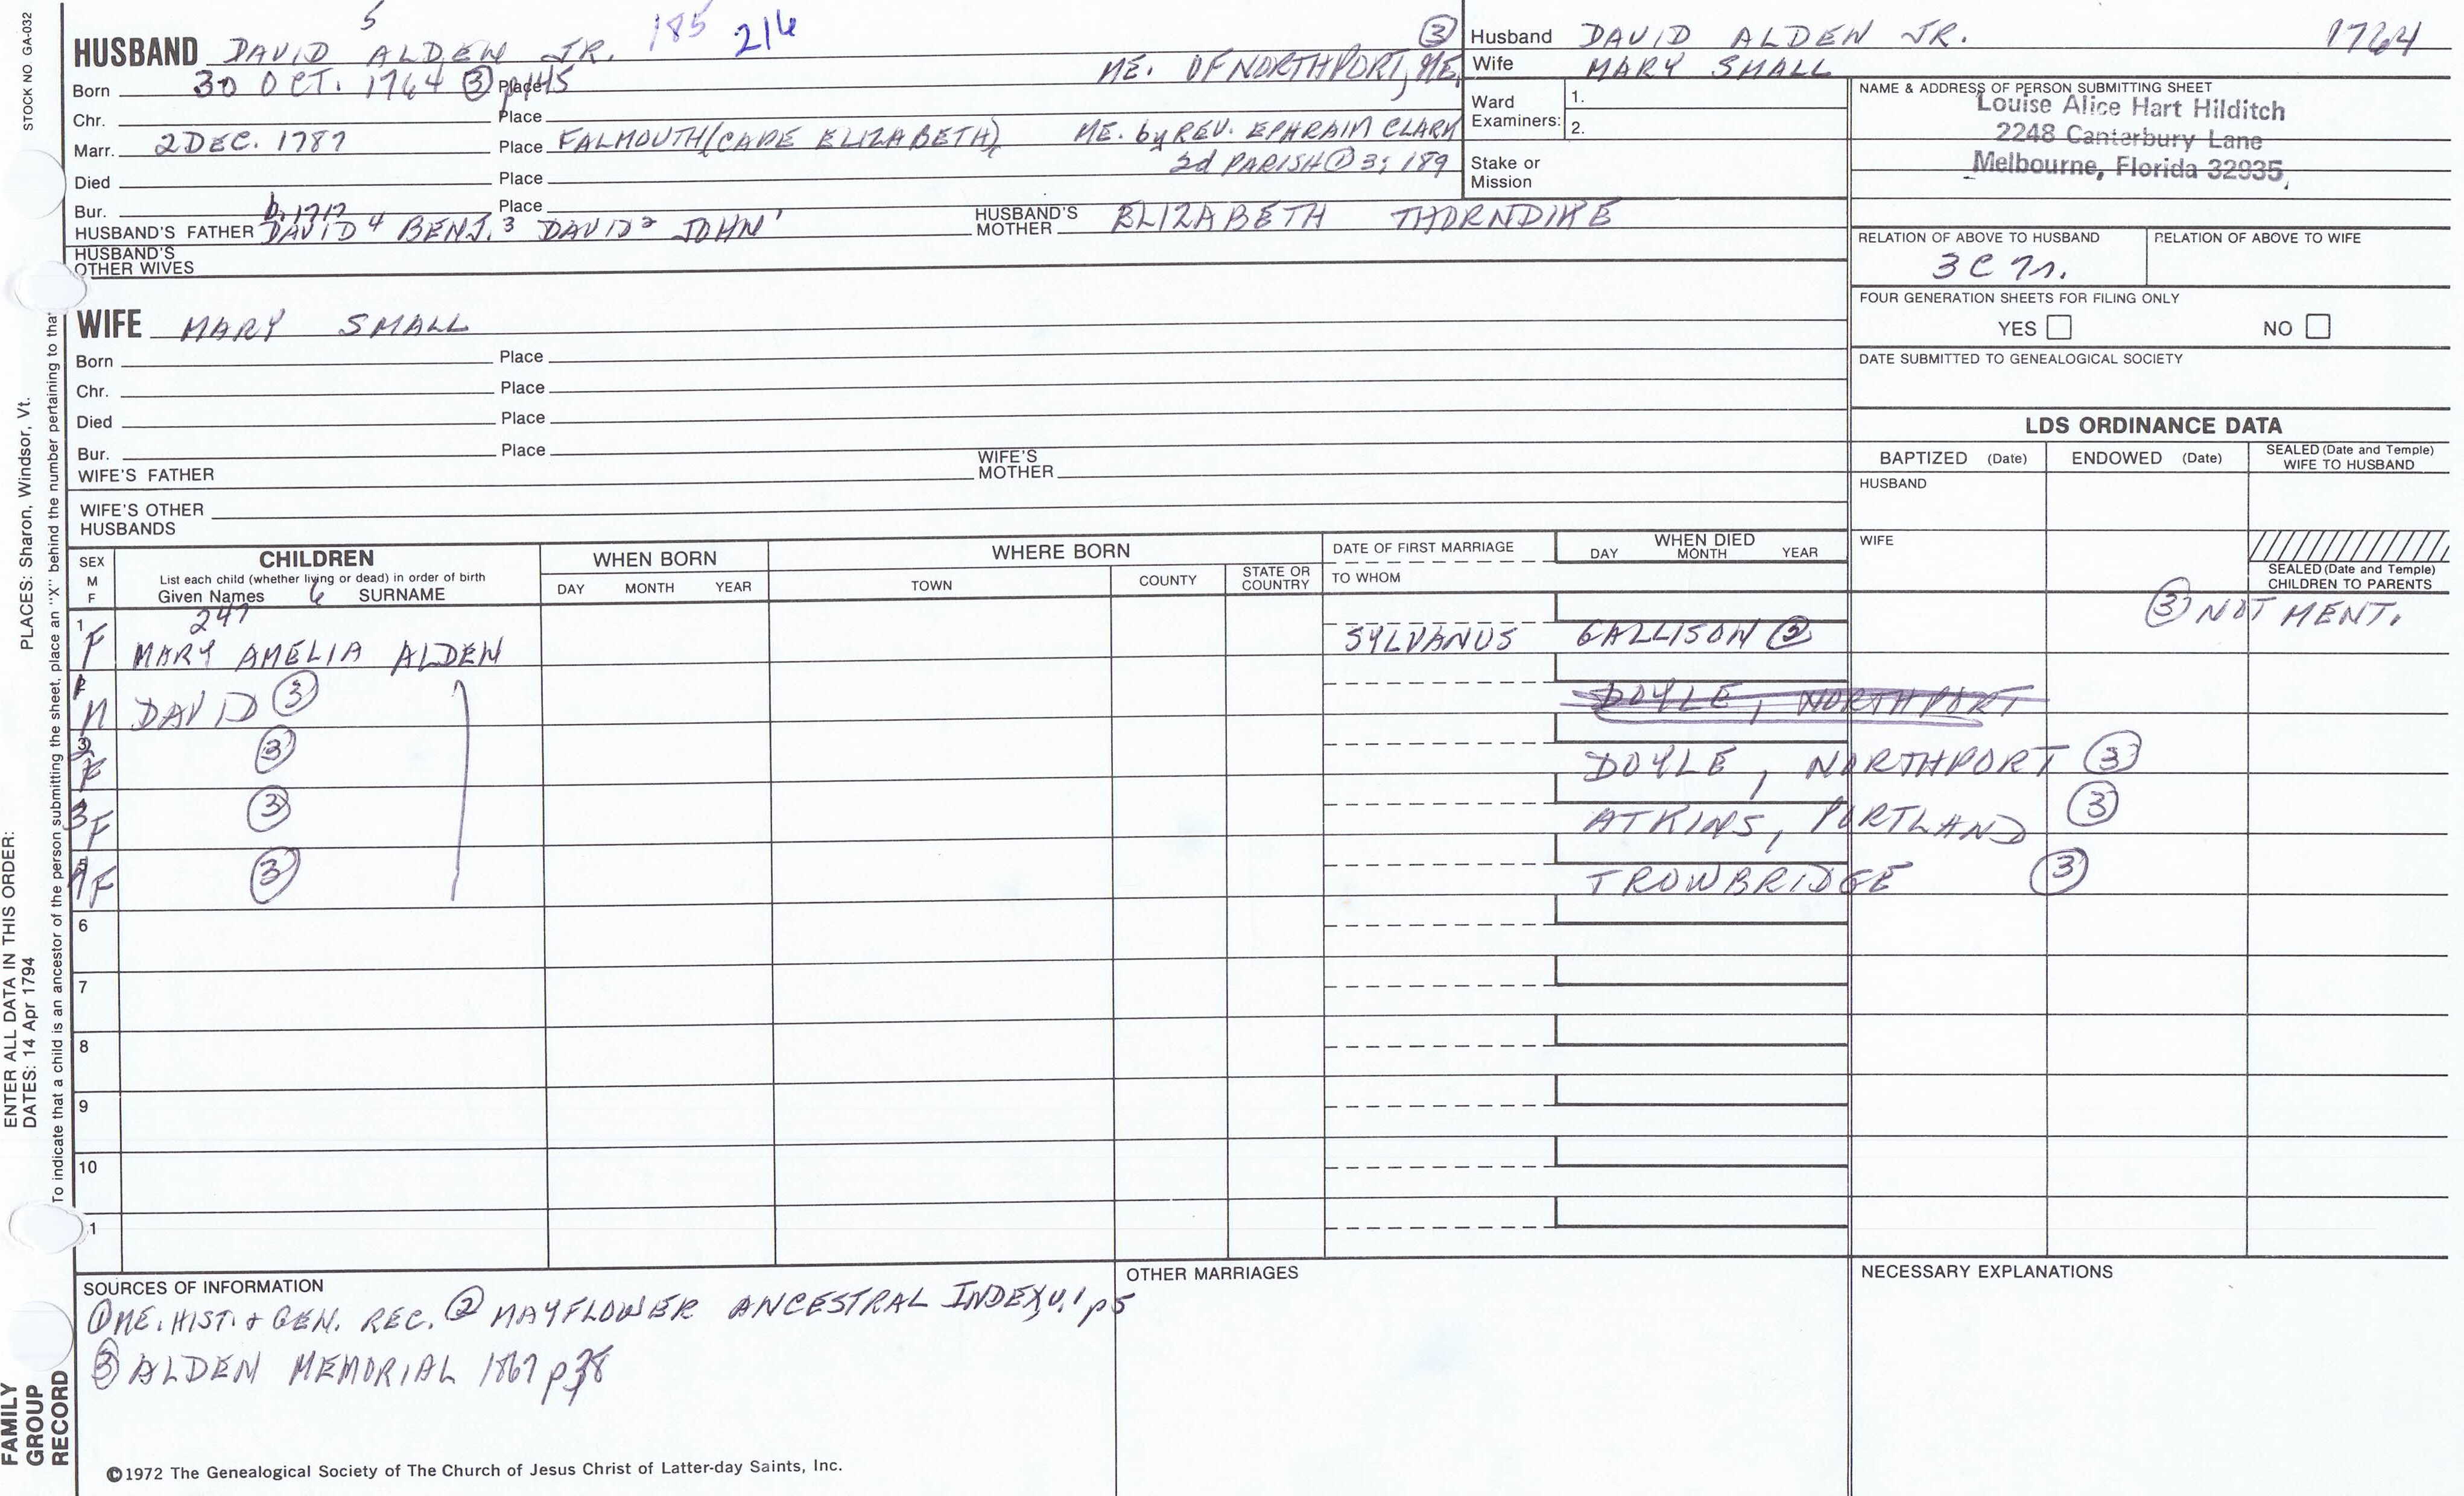 STOCK NO GA-032
5
185 216
HUSBAND DAVID ALDEN JR.
Born 30 OCT. 1764 ③ p145 Place ME. OF NORTHPORT, ME. ③
Chr. Place
Marr. 2 DEC. 1787 Place FALMOUTH (CAPE ELIZABETH), ME. by REV. EPHRAIM CLARK
2d PARISH ① 3; 189
Died Place
Bur. Place
b. 1717
HUSBAND'S FATHER DAVID 4 BENJ. 3 DAVID 2 JOHN 1 HUSBAND'S MOTHER ELIZABETH THORNDIKE
HUSBAND'S OTHER WIVES
WIFE MARY SMALL
Born Place
Chr. Place
Died Place
Bur. Place
WIFE'S FATHER WIFE'S MOTHER
WIFE'S OTHER HUSBANDS
Husband DAVID ALDEN JR. 1764
Wife MARY SMALL
Ward Examiners: 1.
2.
Stake or Mission
NAME & ADDRESS OF PERSON SUBMITTING SHEET
Louise Alice Hart Hilditch
2248 Canterbury Lane
Melbourne, Florida 32935
RELATION OF ABOVE TO HUSBAND RELATION OF ABOVE TO WIFE
3 C
FOUR GENERATION SHEETS FOR FILING ONLY
YES NO
DATE SUBMITTED TO GENEALOGICAL SOCIETY
LDS ORDINANCE DATA
BAPTIZED (Date) ENDOWED (Date) SEALED (Date and Temple) WIFE TO HUSBAND
HUSBAND
WIFE
SEALED (Date and Temple) CHILDREN TO PARENTS
SEX M F CHILDREN WHEN BORN WHERE BORN DATE OF FIRST MARRIAGE WHEN DIED
List each child (whether living or dead) in order of birth
Given Names 6 SURNAME DAY MONTH YEAR TOWN COUNTY STATE OR COUNTRY TO WHOM DAY MONTH YEAR
247 ③ NOT MENT.
1 F MARY AMELIA ALDEN SYLVANUS GALLISON ②
M DAVID ③ DOYLE, NORTHPORT
2 F ③ DOYLE, NORTHPORT ③
3 F ③ ATKINS, PORTLAND ③
4 F ③ TROWBRIDGE ③
6
7
8
9
10
1
SOURCES OF INFORMATION OTHER MARRIAGES NECESSARY EXPLANATIONS
① ME. HIST. & GEN. REC. ② MAYFLOWER ANCESTRAL INDEX, v. 1 p 5
③ ALDEN MEMORIAL 1867 p 38
©1972 The Genealogical Society of The Church of Jesus Christ of Latter-day Saints, Inc.
FAMILY GROUP RECORD
ENTER ALL DATA IN THIS ORDER:
DATES: 14 Apr 1794
PLACES: Sharon, Windsor, Vt.
To indicate that a child is an ancestor of the person submitting the sheet, place an "X" behind the number pertaining to tha